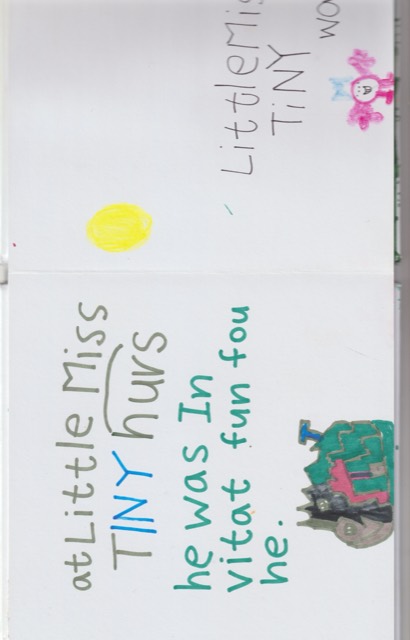 at Little Miss
TINY hurs
he was In
vitat fun fou
he.
LittleMis
TiNY